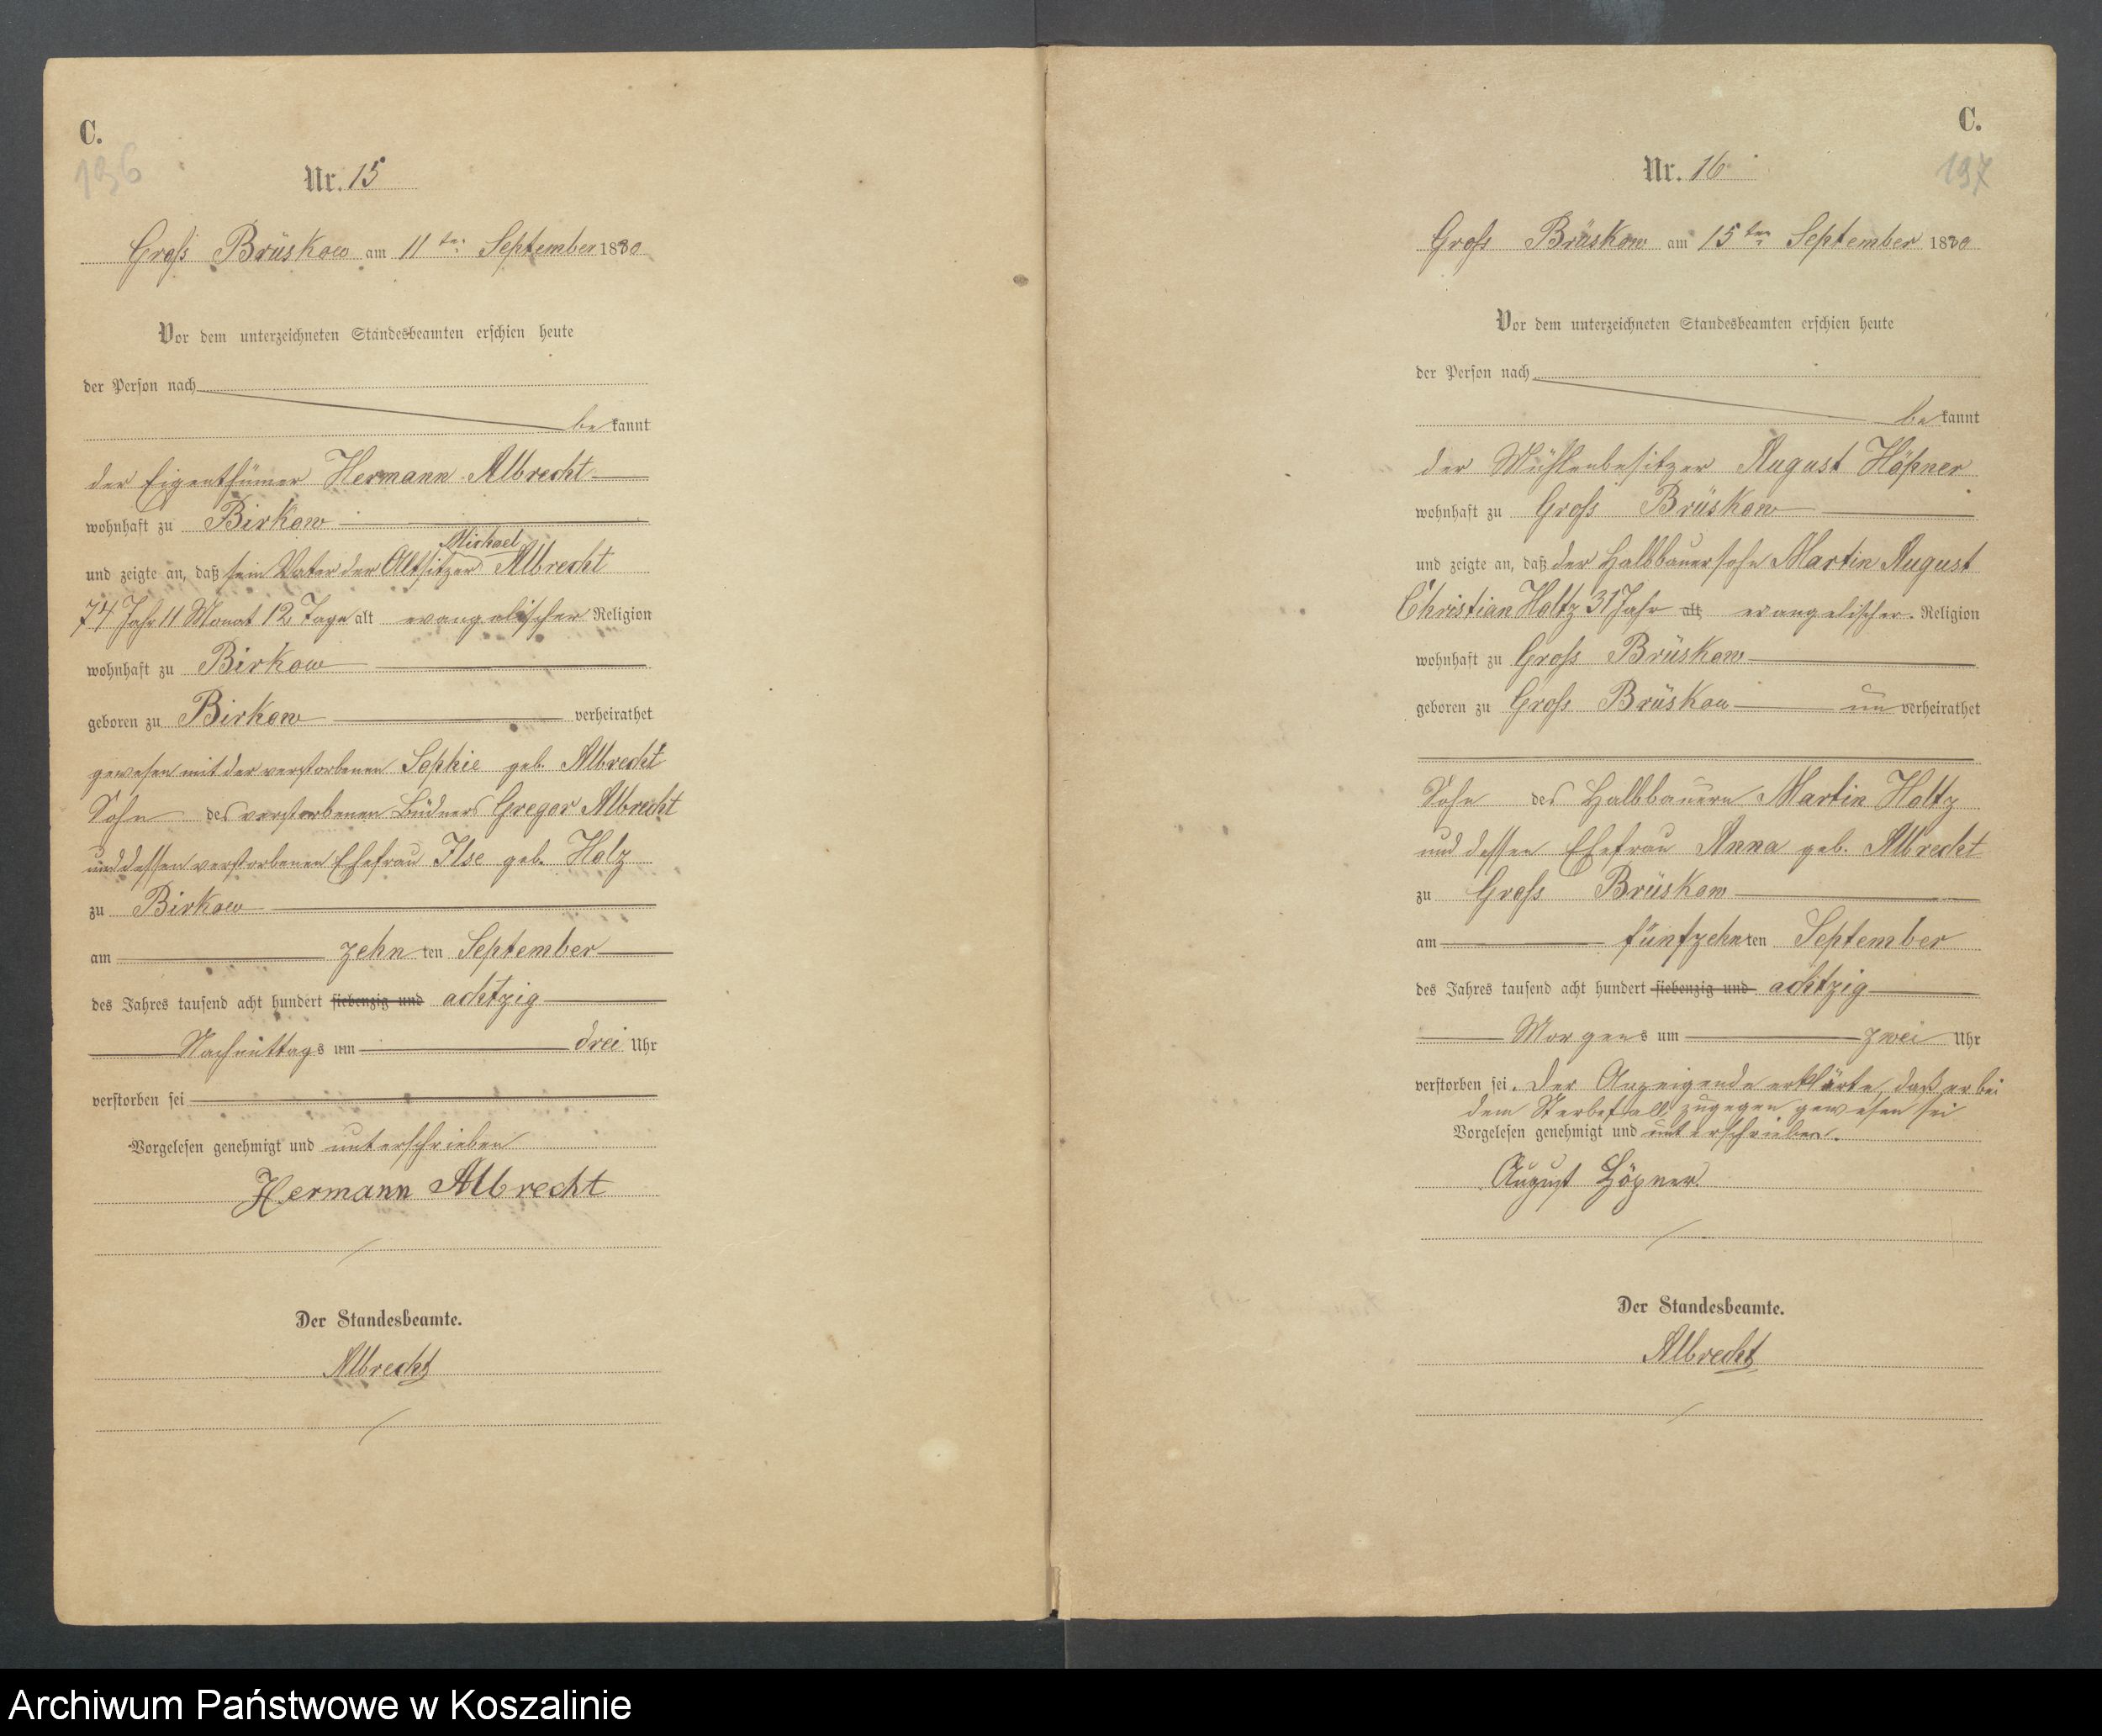 C.
196
Nr. 15
Groß Brüskow am 11ten September 1880
Vor dem unterzeichneten Standesbeamten erschien heute
der Person nach
bekannt
der Eigenthümer Hermann Albrecht
wohnhaft zu Birkow
Michael
und zeigte an, daß sein Vater der Altsitzer Albrecht
74 Jahr 11 Monat 12 Tage alt evangelischer Religion
wohnhaft zu Birkow
geboren zu Birkow verheirathet
gewesen mit der verstorbenen Sophie geb. Albrecht
Sohn des verstorbenen Büdners Gregor Albrecht
und dessen verstorbenen Ehefrau Ilse geb. Holz
zu Birkow
am zehnten September
des Jahres tausend acht hundert siebenzig und achtzig
Nachmittags um drei Uhr
verstorben sei
Vorgelesen genehmigt und unterschrieben
Hermann Albrecht
Der Standesbeamte.
Albrecht
C.
197
Nr. 16
Groß Brüskow am 15ten September 1880
Vor dem unterzeichneten Standesbeamten erschien heute
der Person nach
bekannt
der Mühlenbesitzer August Höpner
wohnhaft zu Groß Brüskow
und zeigte an, daß der Halbbauersohn Martin August
Christian Holtz 31 Jahr alt evangelischer Religion
wohnhaft zu Groß Brüskow
geboren zu Groß Brüskow unverheirathet
Sohn des Halbbauern Martin Holtz
und dessen Ehefrau Anna geb. Albrecht
zu Groß Brüskow
am fünfzehnten September
des Jahres tausend acht hundert siebenzig und achtzig
Morgens um zwei Uhr
verstorben sei. Der Anzeigende erklärte, daß er bei
dem Sterbefall zugegen gewesen sei
Vorgelesen genehmigt und unterschrieben.
August Höpner.
Der Standesbeamte.
Albrecht
Archiwum Państwowe w Koszalinie